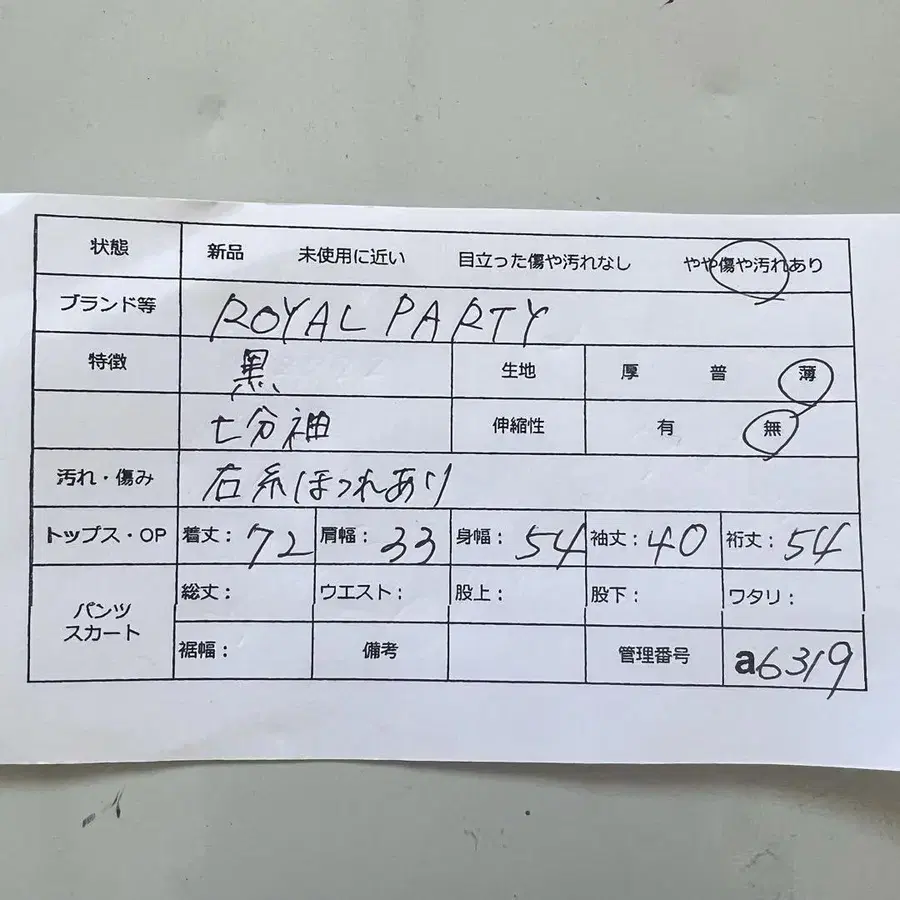 状態 新品 未使用に近い 目立った傷や汚れなし やや傷や汚れあり
ブランド等 ROYAL PARTY
特徴 黒 生地 厚 普 薄
七分袖 伸縮性 有 無
汚れ・傷み 右糸ほつれあり
トップス・OP 着丈：72 肩幅：33 身幅：54 袖丈：40 裄丈：54
パンツ スカート 総丈： ウエスト： 股上： 股下： ワタリ：
裾幅： 備考 管理番号 a6319